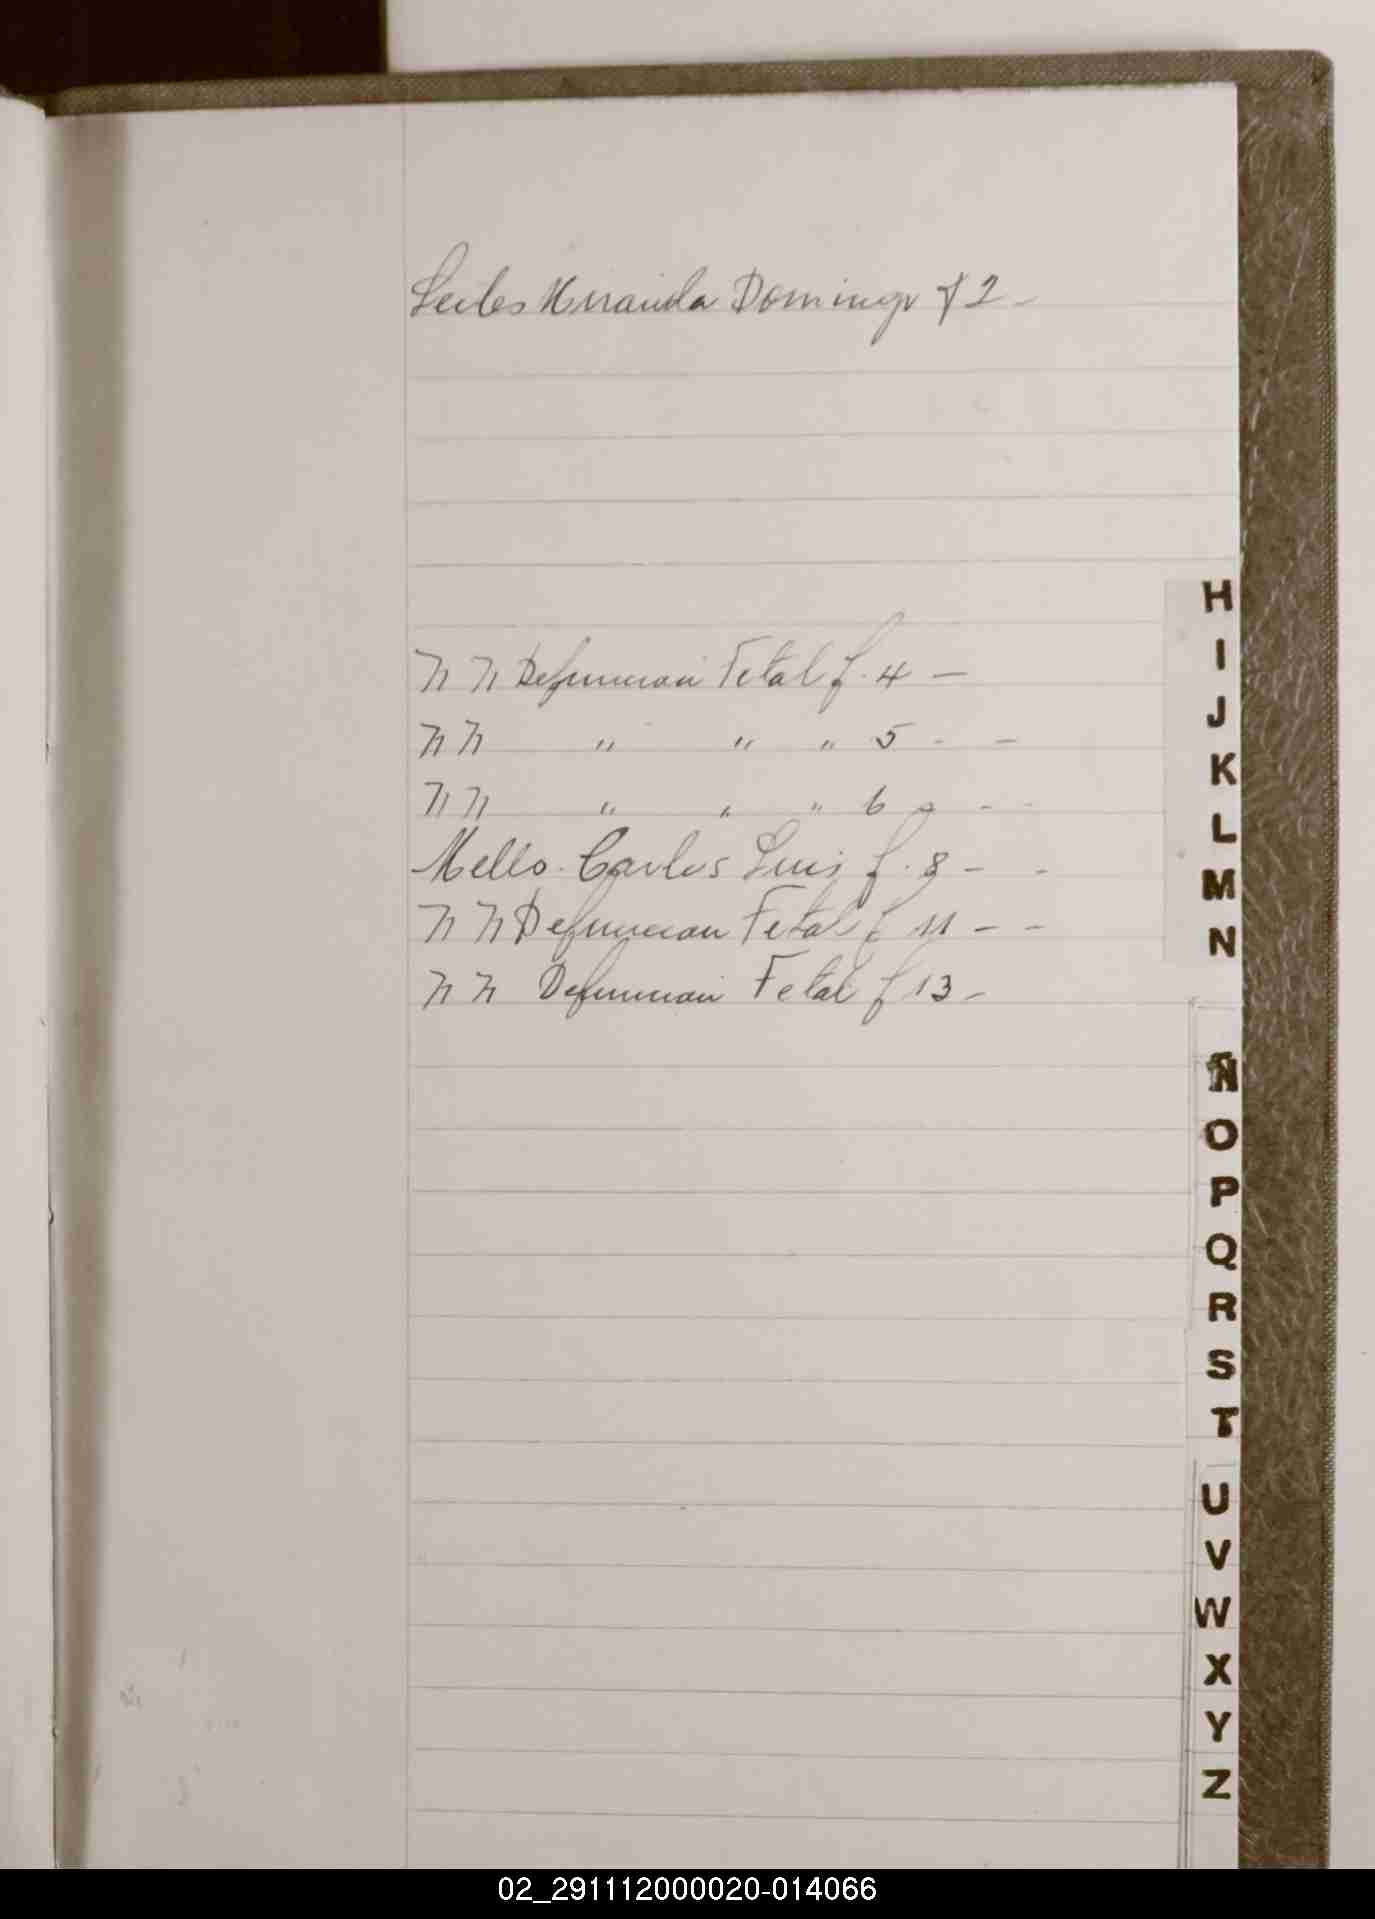 Seeles Miranda Domingo f 2 -
N N Defuncion Fetal f. 4 —
N N " " " 5 - -
N N " " " 6 - -
Mello Carlos Luis f. 8 - -
N N Defuncion Fetal f 11 - -
N N Defuncion Fetal f 13 -
H
I
J
K
L
M
N
Ñ
O
P
Q
R
S
T
U
V
W
X
Y
Z
02_291112000020-014066